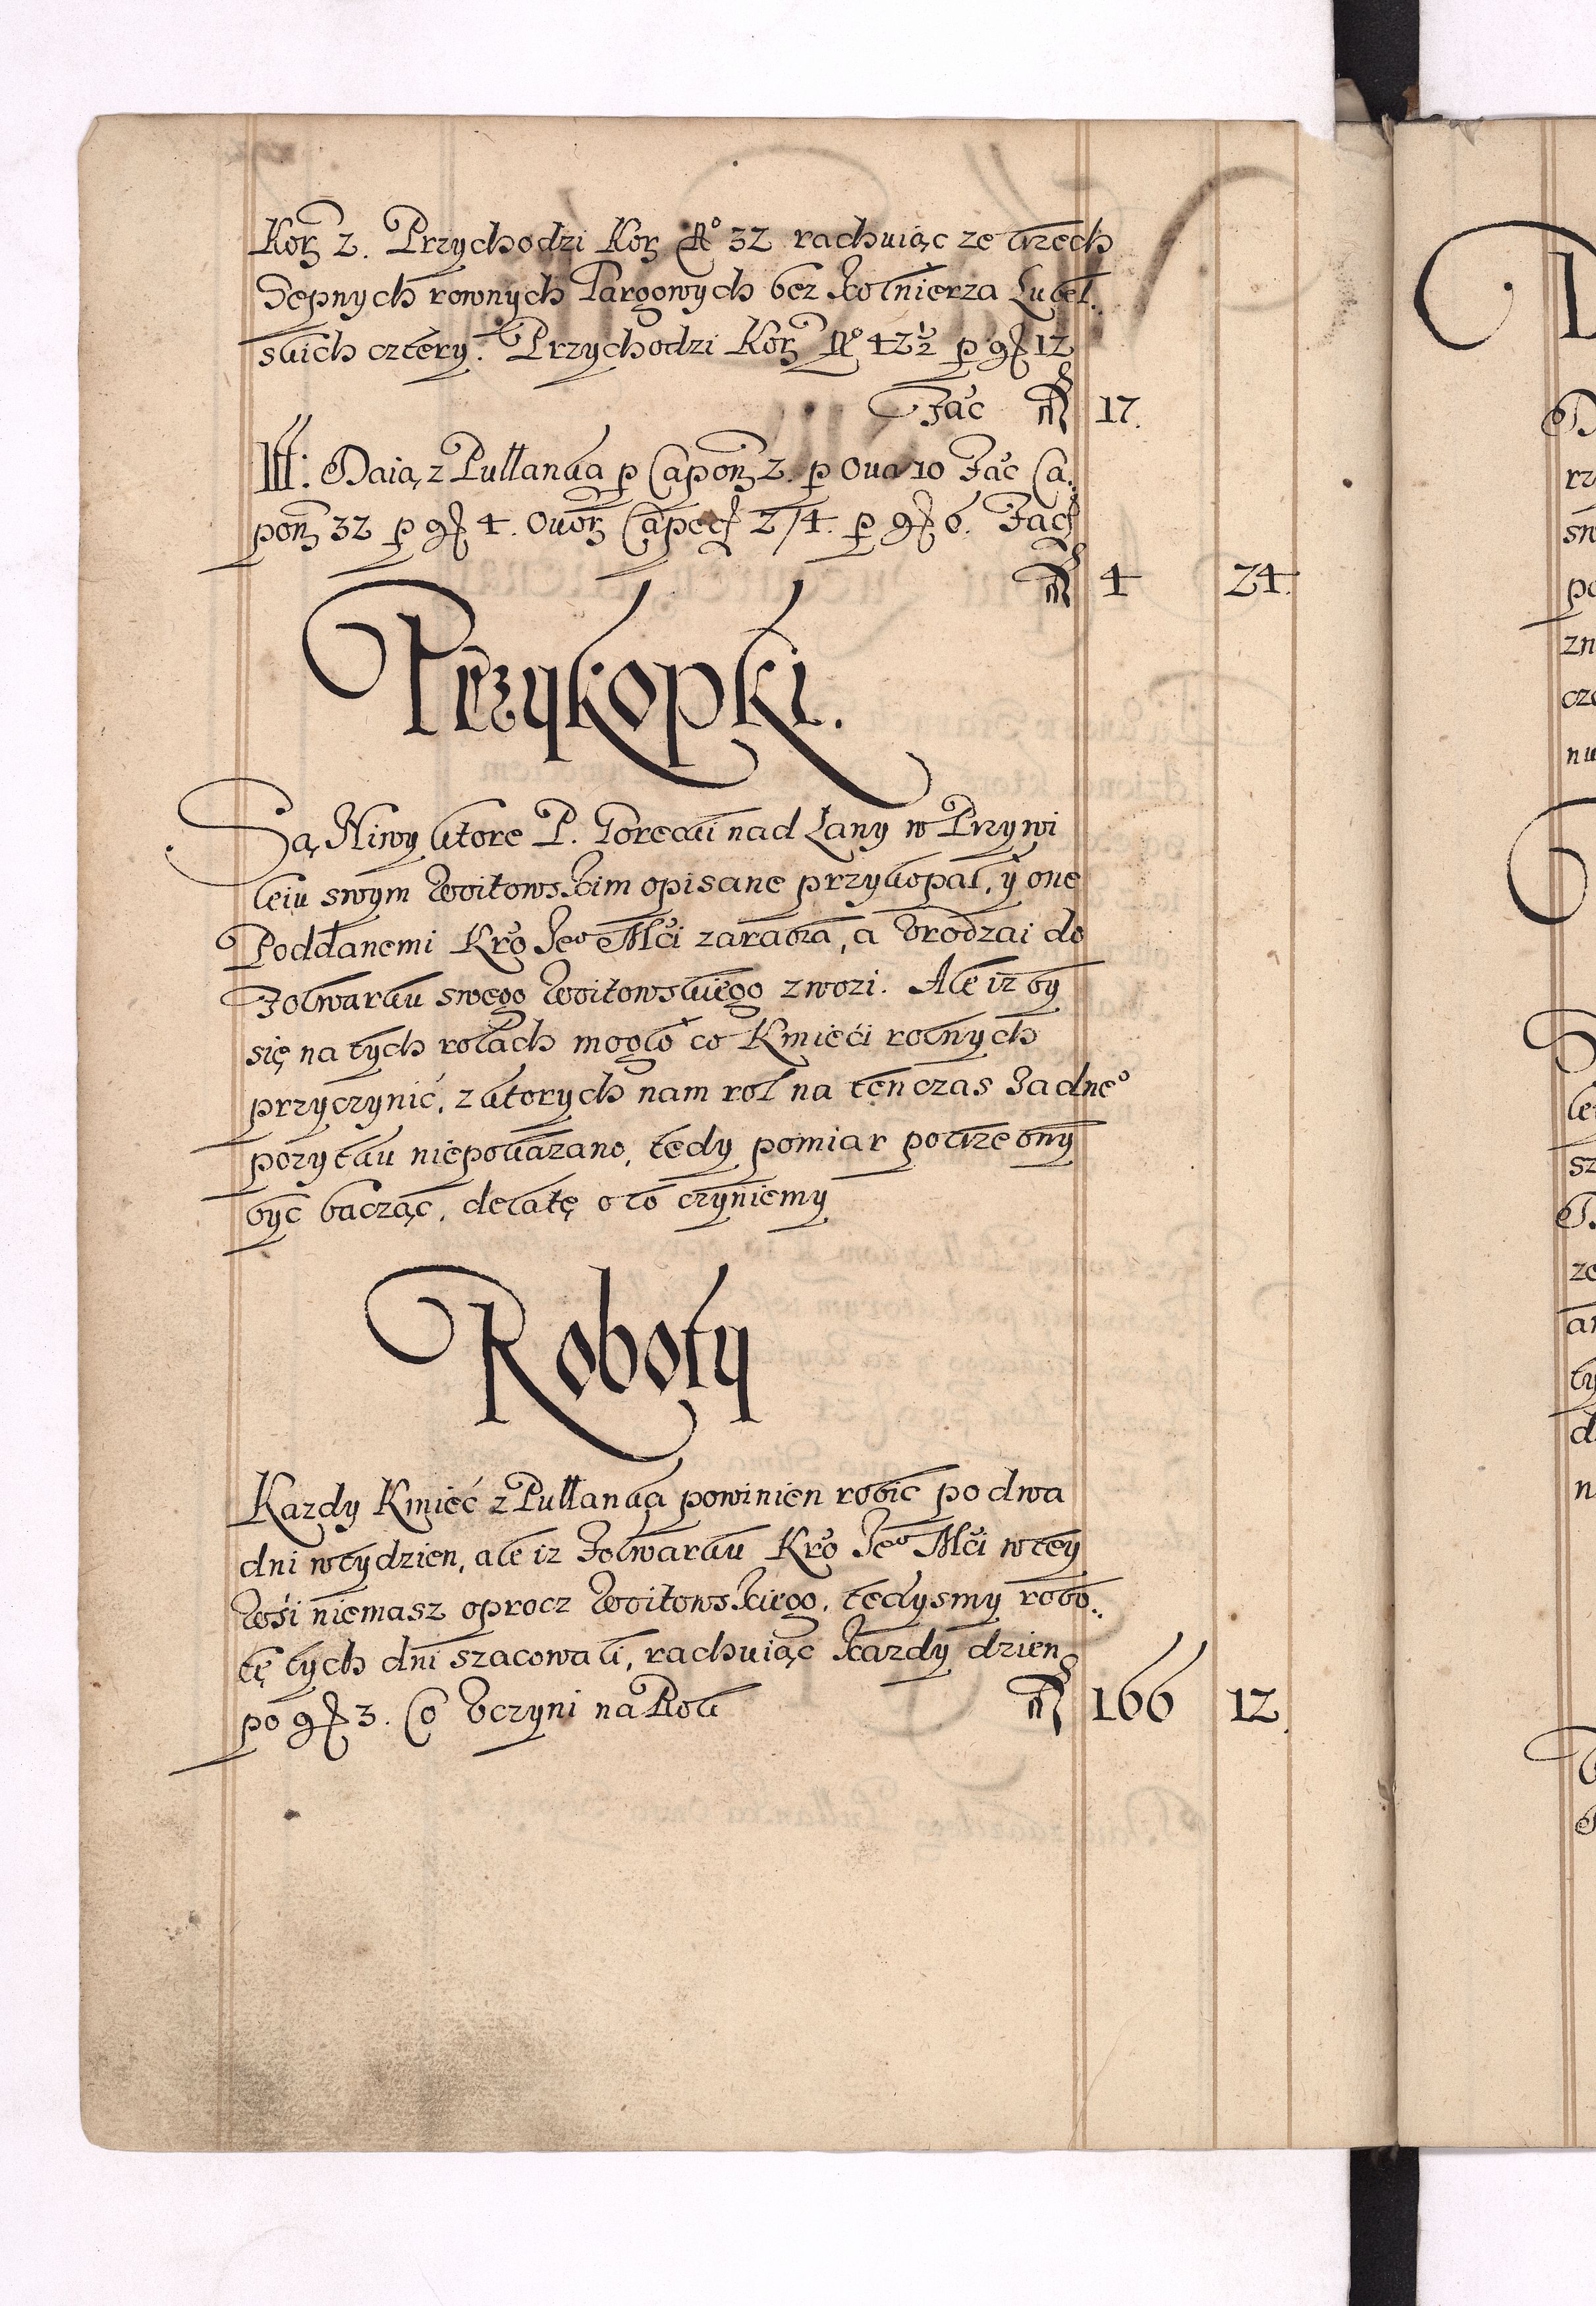 Korz 2. Przychodzi Korz No 32 rachuiąc ze trzech
Sepnych rownych Targowych bez kolnierza Lubel.
skich cztery. Przychodzi Korz No 42½ p gr 12
Fac fl 17.
Itt: Daią z Pułłanka p Capon 2. p Oua 10 Fac Ca.
pon 32 p gr 4. Ouor Capec 2/4. p gr 6. Fac
fl 4 24.
Przykopki.
Są Niwy ktore P. Gorecki nad Łany w Przywi
leiu swym Woitowskim opisane przykopał, y one
Poddanemi Kro Jeo Mci zarabia, a Vrodzai do
Folwarku swego Woitowskiego zwozi. Ale iz by
się na tych rolach mogło co Kmieći rolnych
przyczynić, z ktorych nam rol na ten czas Zadneo
pozytku niepokazano, tedy pomiar potrzebny
byc bacząc, delatę o to czyniemy
Roboty
Kazdy Kmieć z Pułłanka powinien robic po dwa
dni w tydzien, ale iz Folwarku Kro Jeo Mci w tey
Wśi niemasz oprocz Woitowskiego, tedysmy robo.
tę tych dni szacowali, rachuiąc kazdy dzien
po gr 3. Co Vczyni na Rok fl 166 12.